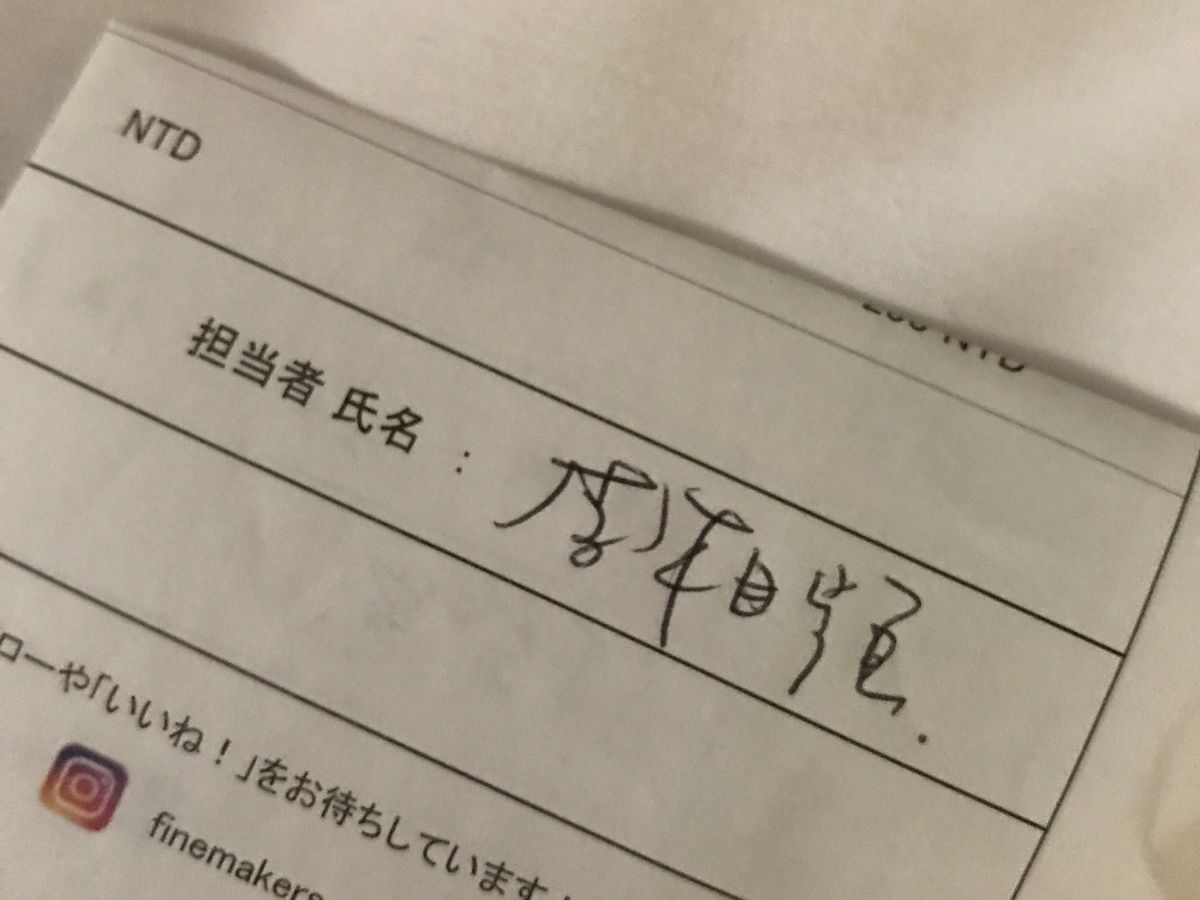 NTD
NTD
担当者 氏名 : 李湘穎.
ローや「いいね！」をお待ちしています
finemakers